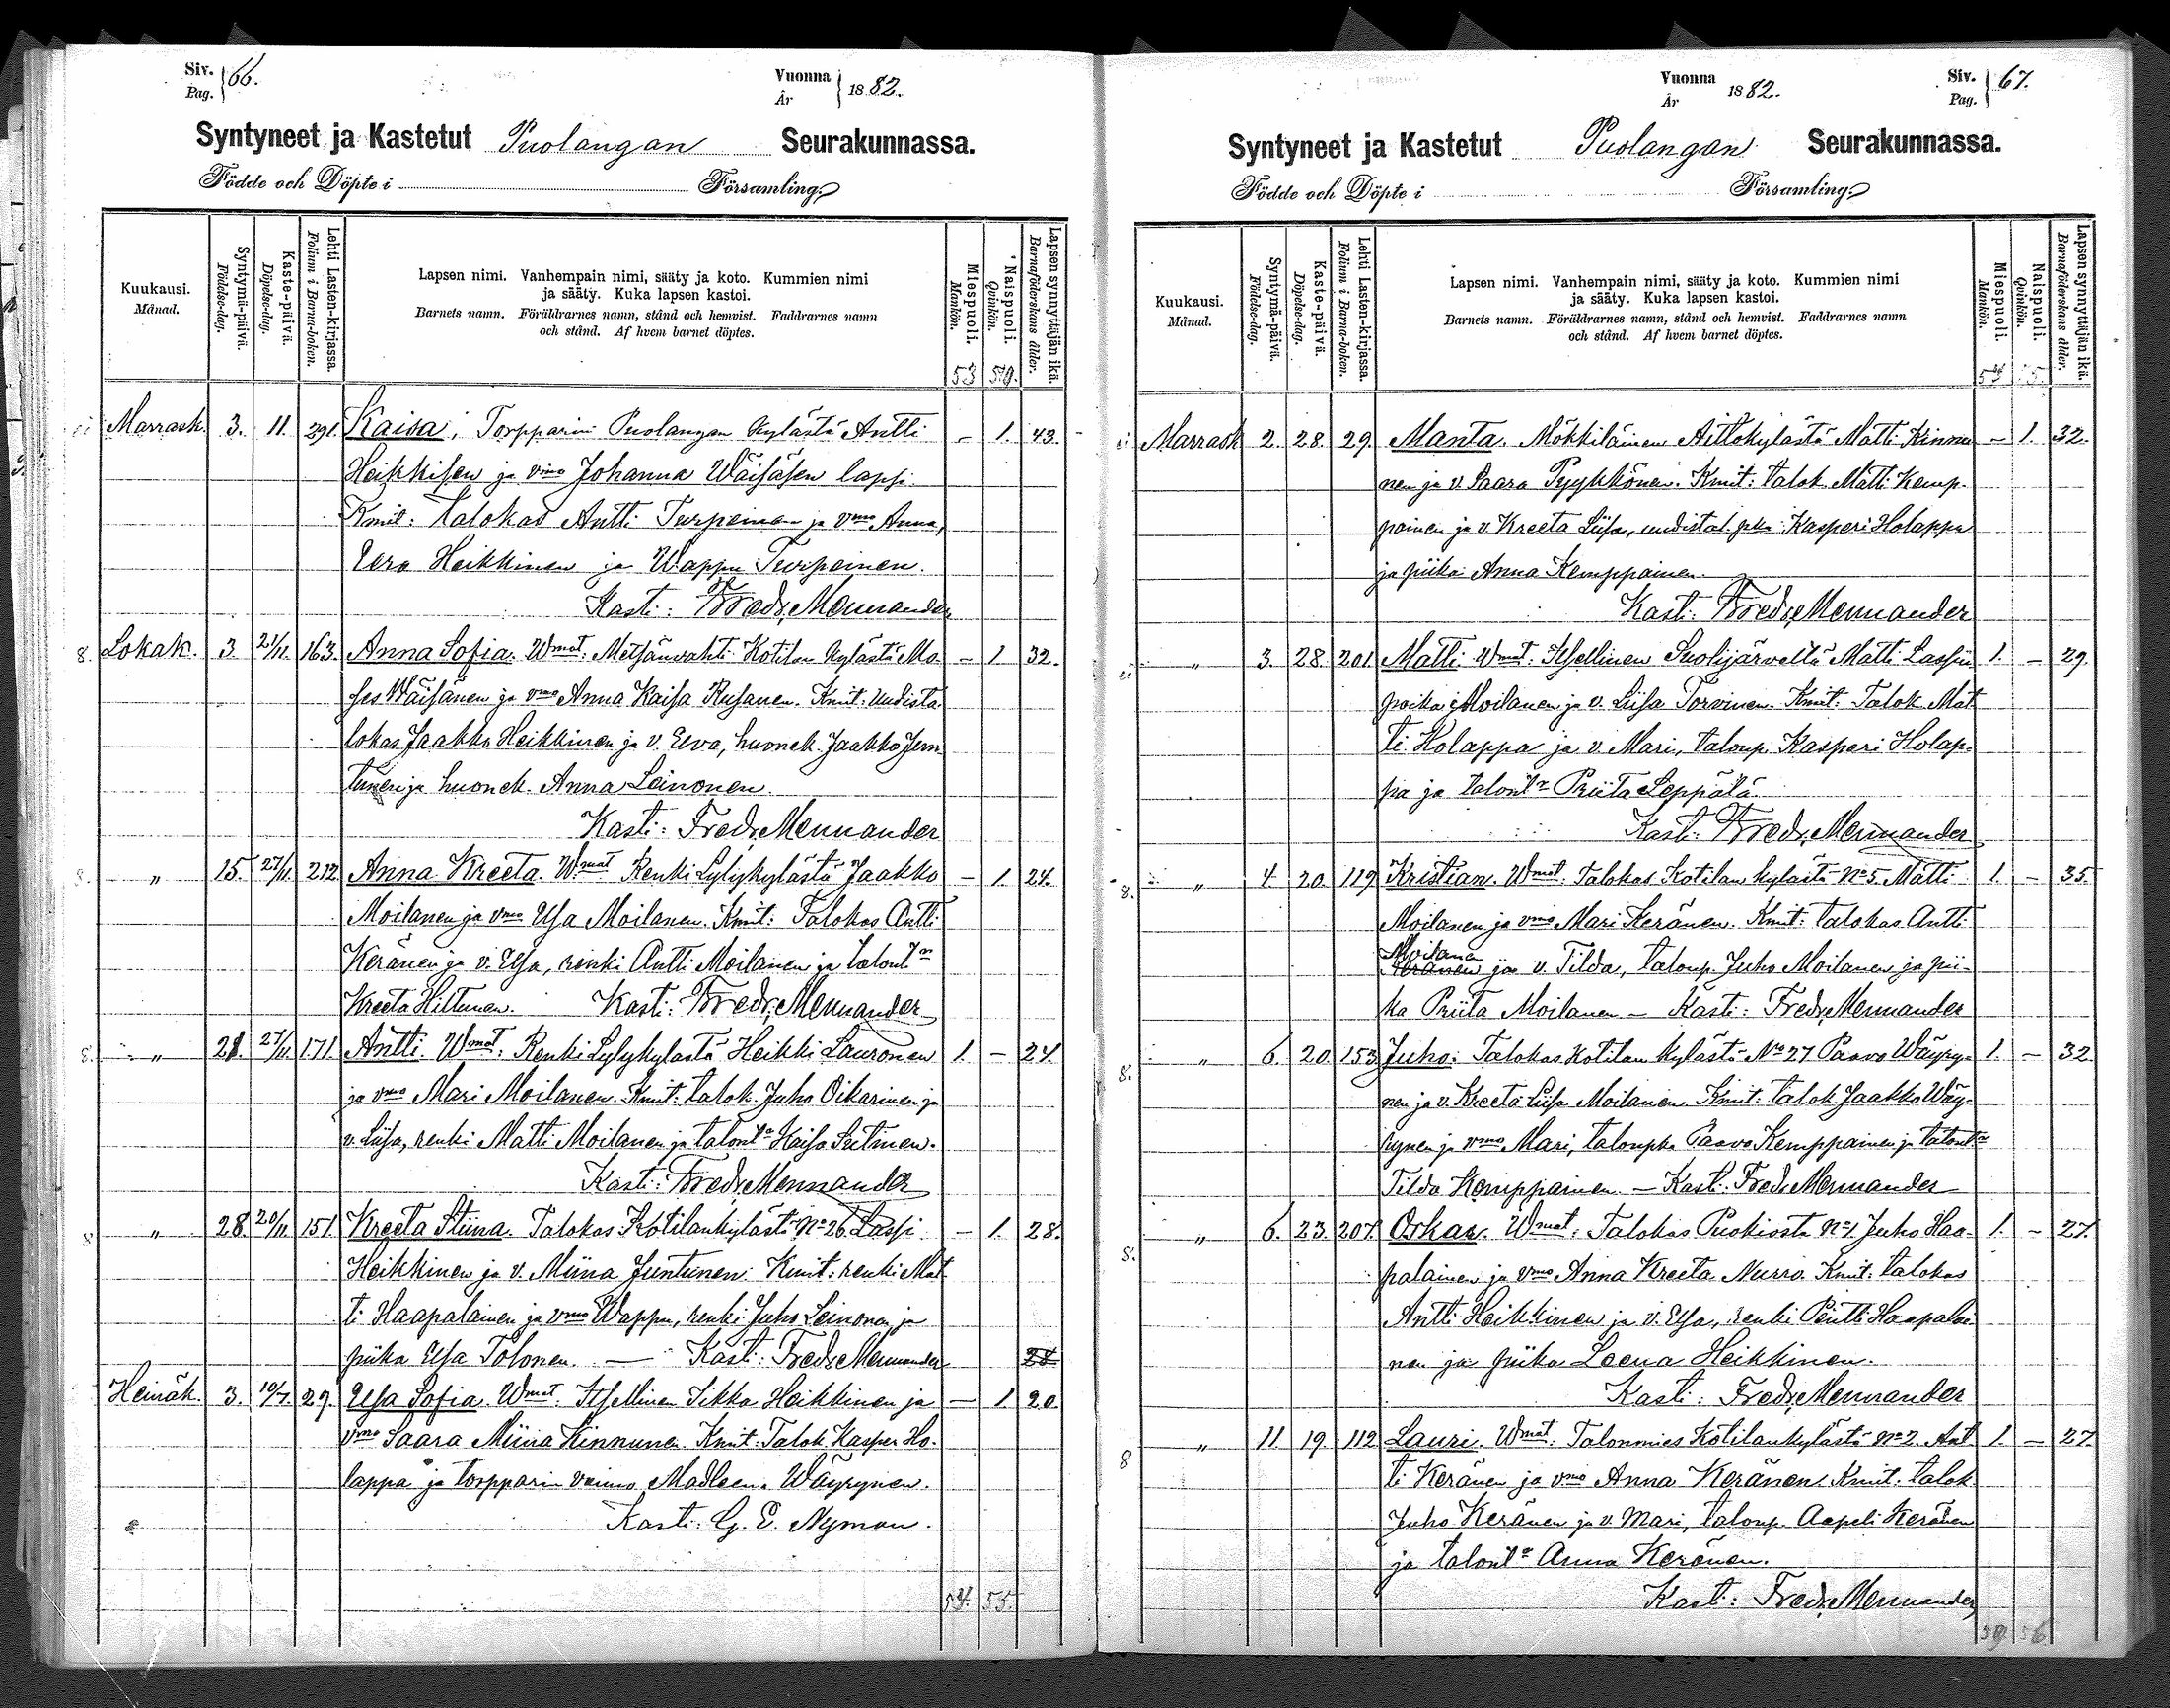 Siv. Pag. 66.
Vuonna År 1882.
Syntyneet ja Kastetut Puolangan Seurakunnassa.
Födde och Döpte i Församling.
Kuukausi. Månad.
Syntymä-päivä. Födelse-dag.
Kaste-päivä. Döpelse-dag.
Lehti Lasten-kirjassa. Folium i Barna-boken.
Lapsen nimi. Vanhempain nimi, sääty ja koto. Kummien nimi
ja sääty. Kuka lapsen kastoi.
Barnets namn. Föräldrarnes namn, stånd och hemvist. Faddrarnes namn
och stånd. Af hvem barnet döptes.
Miespuoli. Mankön.
Naispuoli. Quinkön.
Lapsen synnyttäjän ikä. Barnaföderskans ålder.
53 59.
Marrask. 3. 11. 291. Kaisa, Torpparin Puolangan kylästä Antti – 1. 43.
Heikkisen ja vmo Johanna Wäisäsen lapsi.
Kmit: Talokas Antti Turpeinen ja vmo Anna,
Eero Heikkinen ja Wappu Turpeinen.
Kasti: Fredr. Mennander
8. Lokak. 3. 21/11. 163. Anna Sofia. Wmat: Metsänvahti Kotilan kylästä Mo- – 1. 32.
ses Wäisänen ja vmo Anna Kaisa Kusanen. Kmit: Uudista-
lokas Jaakko Heikkinen ja v. Eeva, huonek. Jaakko Jun-
tunen ja huonek. Anna Leinonen.
Kasti: Fredr. Mennander
8. „ 15. 27/11. 212 Anna Kreeta. Wmat Renki Lylykylästä Jaakko – 1. 24.
Moilanen ja vmo Elsa Moilanen. Kmit: Talokas Antti
Keränen ja v. Elsa, renki Antti Moilanen ja talont.
Kreeta Hiltunen. Kasti: Fredr. Mennander
8. „ 21. 27/11. 171. Antti. Wmat: Renki Lylykylästä Heikki Lauronen 1. – 24.
ja vmo Mari Moilanen. Kmit: talok. Juho Oikarinen ja
v. Liisa, renki Matti Moilanen ja talont. Kaisa
Kasti: Fredr. Mennander
8 „ 28. 20/11. 151. Kreeta Stiina. Talokas Kotilankylästä No 26. Lassi – 1. 28.
Heikkinen ja v. Miina Juntunen. Kmit: renki Mat-
ti Haapalainen ja vmo Wappu, renki Juho Leinonen ja
piika Elsa Tolonen. — Kasti: Fredr. Mennander 28
Heinäk. 3. 10/7. 29. Elsa Sofia. Wmat: Itsellinen Sikka Heikkinen ja – 1. 20.
vmo Saara Miina Kinnunen. Kmit: Talok. Kasper Ho-
lappa ja torpparin vaimo Madleena Wäyrynen.
Kasti: G. E. Nyman.
54. 55.
Vuonna År 1882.
Siv. Pag. 67.
Syntyneet ja Kastetut Puolangan Seurakunnassa.
Födde och Döpte i Församling.
Kuukausi. Månad.
Syntymä-päivä. Födelse-dag.
Kaste-päivä. Döpelse-dag.
Lehti Lasten-kirjassa. Folium i Barna-boken.
Lapsen nimi. Vanhempain nimi, sääty ja koto. Kummien nimi
ja sääty. Kuka lapsen kastoi.
Barnets namn. Föräldrarnes namn, stånd och hemvist. Faddrarnes namn
och stånd. Af hvem barnet döptes.
Miespuoli. Mankön.
Naispuoli. Quinkön.
Lapsen synnyttäjän ikä. Barnaföderskans ålder.
Marrask 2. 28. 29. Manta. Mökkiläinen Aittokylästä Matti Kinnu- – 1. 32.
nen ja v. Saara Pyykkönen. Kmit: talok. Matti Kemp-
painen ja v. Kreeta Liisa, uudistal. poika Kasperi Holappa
ja piika Anna Kemppainen.
Kasti: Fredr. Mennander
„ 3. 28. 201. Matti. Wmat: Itsellinen Suolijärveltä Matti Lassin 1. – 29.
poika Moilanen ja v. Liisa Torvinen. Kmit: Talok. Mat-
ti Holappa ja v. Mari, taloup. Kasperi Holap-
pa ja talont. Priita Leppälä.
Kasti: Fredr. Mennander
8. „ 4. 20. 119 Kristian. Wmat: Talokas Kotilan kylästä No 5. Matti 1. – 35.
Moilanen ja vmo Mari Keränen. Kmit: talokas Antti
Moilanen
Keränen ja v. Tilda, taloup. Juho Moilanen ja pii-
ka Priita Moilanen – Kasti: Fredr. Mennander
8. „ 6. 20. 153 Juho. Talokas Kotilan kylästä No 27 Paavo Wäyry- 1. – 32
nen ja v. Kreeta Liisa Moilanen. Kmit: talok. Jaakko Wäy-
rynen ja vmo Mari, taloupka Paavo Kemppainen ja talont.
Tilda Kemppainen. – Kasti: Fredr. Mennander
8. „ 6. 23. 207. Oskar. Wmat: Talokas Puokiosta No 1. Juho Haa- 1. – 27.
palainen ja vmo Anna Kreeta Nurro. Kmit: talokas
Antti Heikkinen ja v. Elsa, renki Pentti Haapalai-
nen ja piika Leena Heikkinen.
Kasti: Fredr. Mennander
8 „ 11. 19. 112 Lauri. Wmat: Talonmies Kotilankylästä No 2. Ant- 1. – 27.
ti Keränen ja vmo Anna Keränen. Kmit: talok.
Juho Keränen ja v. Mari, taloup. Aapeli Keränen
ja talont. Anna Keränen.
Kasti: Fredr. Mennander
59 56